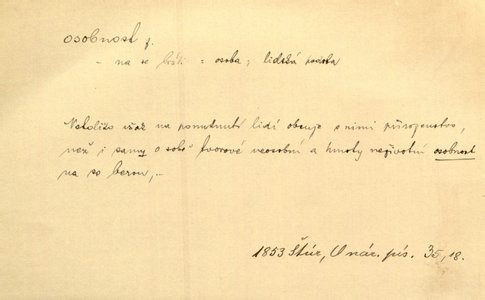 osobnost f.
– na se bráti = osoba, lidská podoba
Netoliko však na pomyknutí lidí obcuje s nimi přirozenstvo,
než i samy o sobě tvorové neosobní a hmoty neživotní osobnost
na se berou,...
1853 Štúr, O nár. pís. 18.